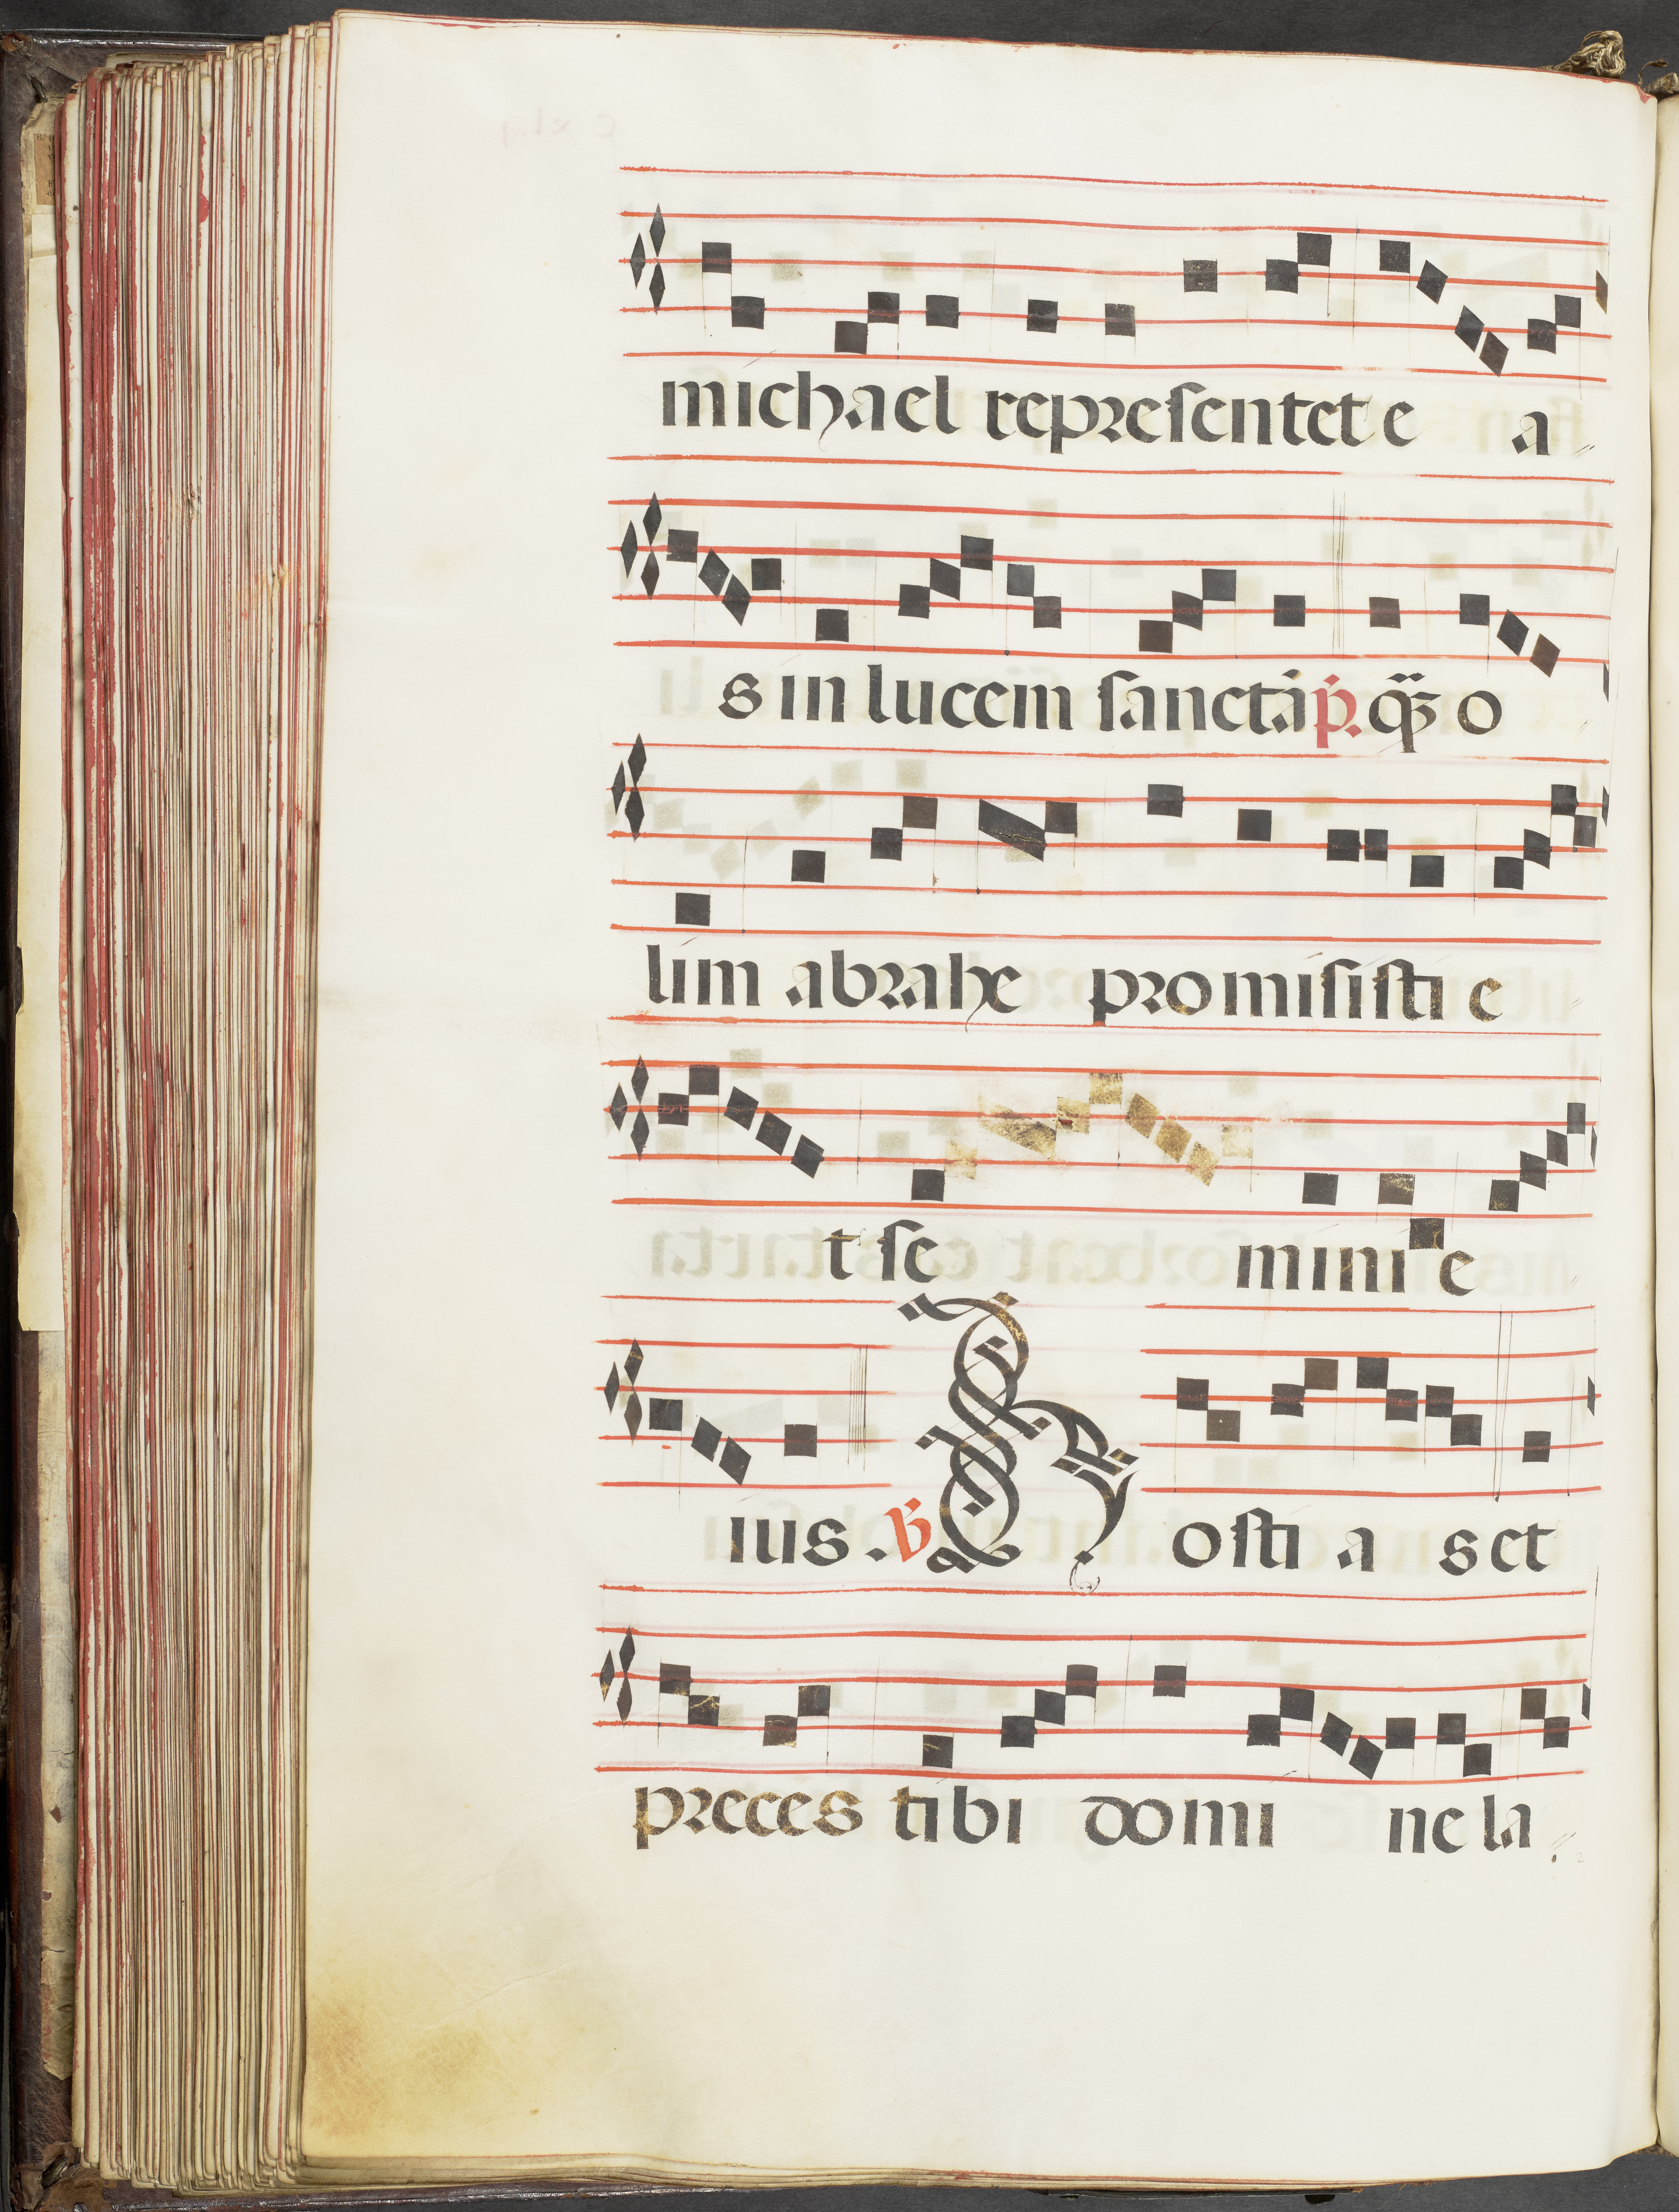 michael representet e a
s in lucem sanctā p̄. q̄ȝ o
lim abrahe promisisti e
t se mini e
ius. ℣ H osti a s et
preces tibi domi ne la